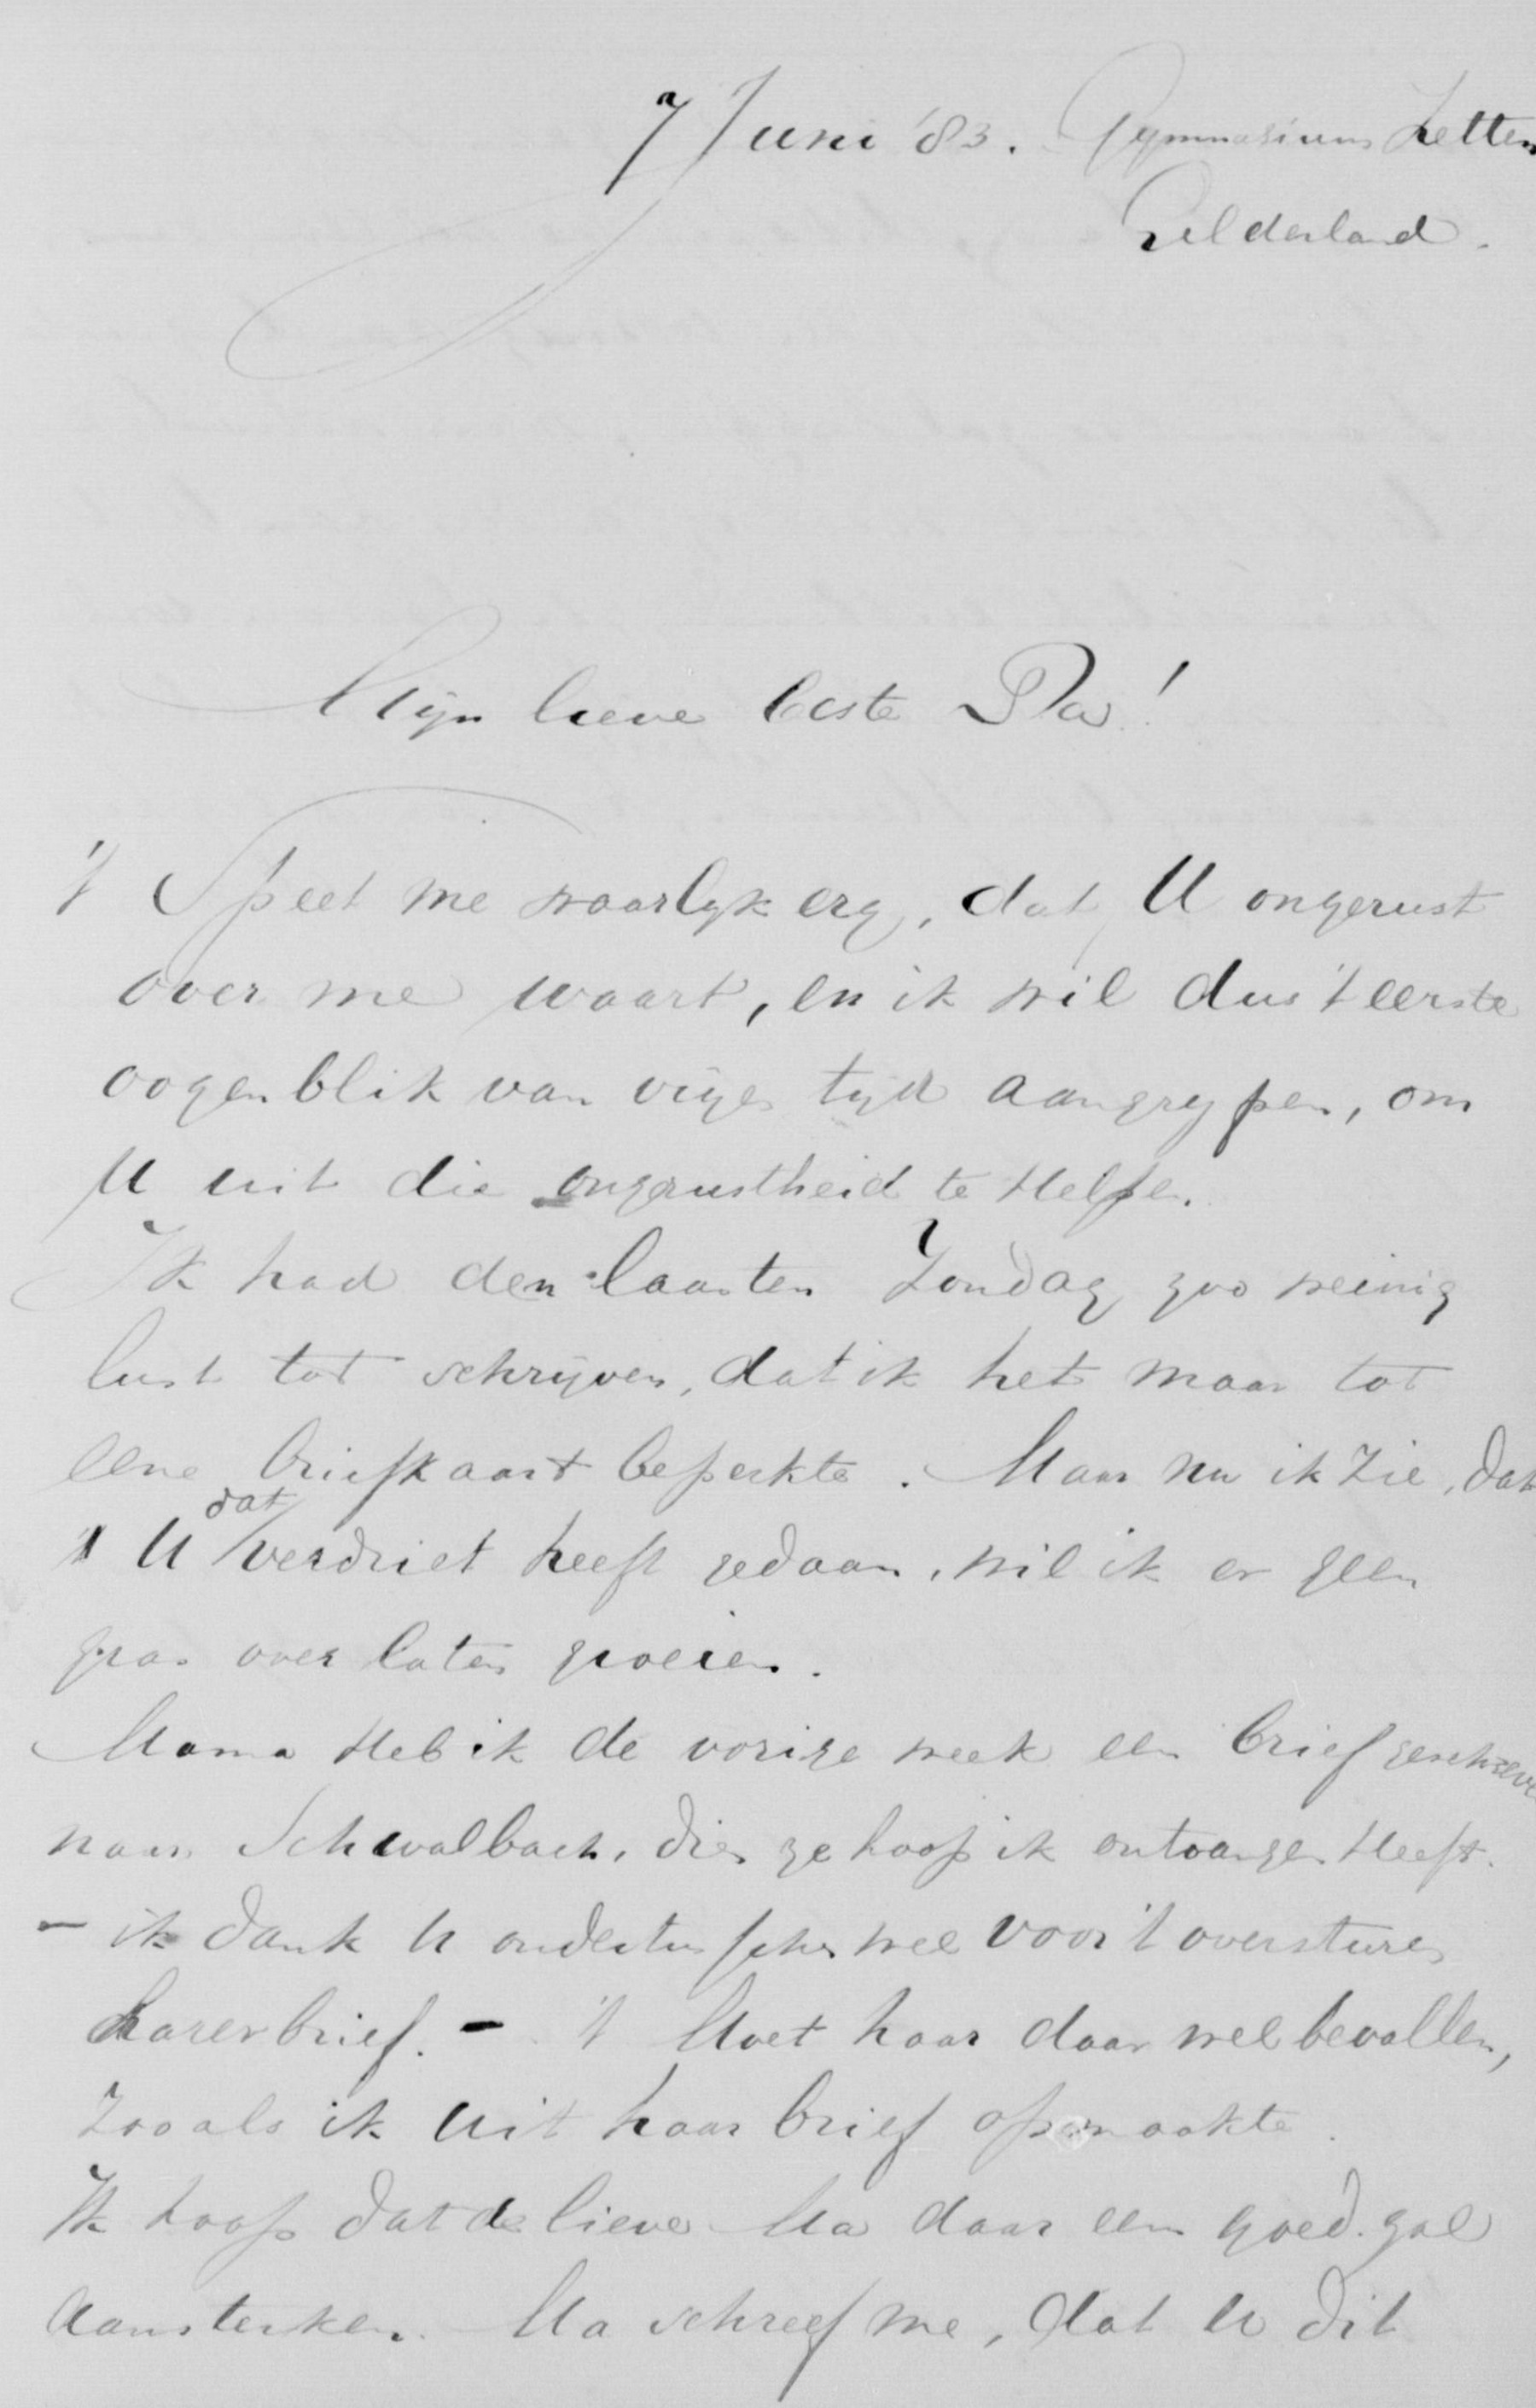 7 Juni '83. Gymnasium Zetten
Gelderland.
Mijn lieve beste Pa!
't Speet me waarlyk erg, dat U ongerust
over me waart, en ik wil dus 't eerste
oogenblik van vrije tyd aangrypen, om
U uit die ongerustheid te Helpen.
Ik had den laasten Zondag zoo weinig
lust tot schrijven, dat ik het maar tot
eene briefkaart beperkte. Maar nu ik zie, dat
U dat verdriet heeft gedaan, wil ik er geen
gras over laten groeien.
Mama Heb ik de vorige week een brief geschreven
naar Schwalbach, die ze hoop ik ontvangen Heeft.
- ik dank U ondertusschen wel voor 't oversturen
harer brief. - 't Moet haar daar wel bevallen,
zooals ik uit haar brief opmaakte.
Ik hoop dat de lieve Ma daar een goed. zal
Aansterken. Ma schreef me, dat U dit